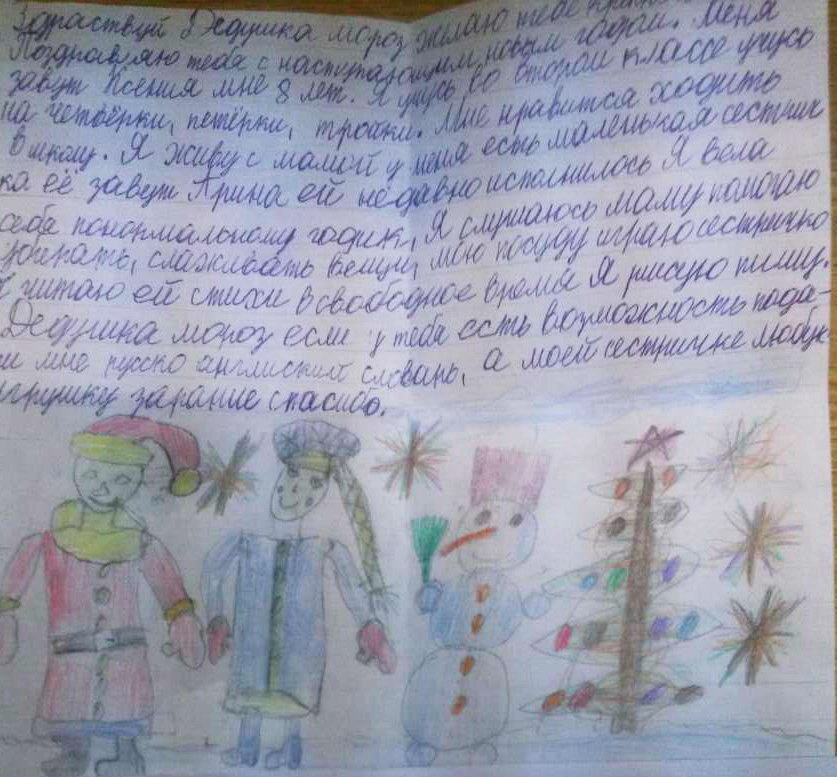 Здраствуй Дедушка мороз желаю тебе
Поздравляю тебя с наступающим, новым годом. Меня
завут Ксения мне 8 лет. Я учусь во втором классе учусь
на четвёрки, петёрки, тройки. Мне нравится ходить
в школу. Я живу с мамой у меня есть маленькая сестрич
ка её завут Арина ей недавно исполнилось Я вела
себя понормальному годик, Я слушаюсь маму помогаю
уберать, слаживать вещи, мою посуду играю сестричко
читаю ей стихи в свободное время Я рисую пишу.
Дедушка мороз если у тебя есть возможность пода-
ри мне русско англиский словарь, а моей сестричке любую
игрушку зарание спасибо.